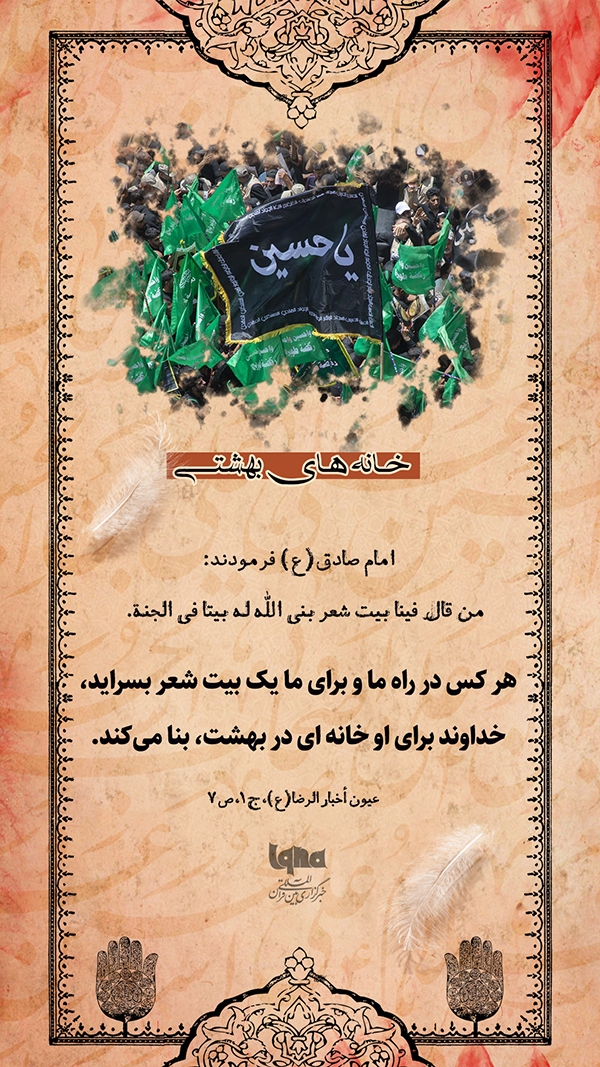 یا حسین
خانه های بهشتی
امام صادق (ع) فرمودند:
من قال فینا بیت شعر بنی الله له بیتا فی الجنة.
هر کس در راه ما و برای ما یک بیت شعر بسراید،
خداوند برای او خانه ای در بهشت، بنا می‌کند.
عیون أخبار الرضا(ع)، ج۱، ص۷
Iqna
خبرگزاری بین المللی قرآن